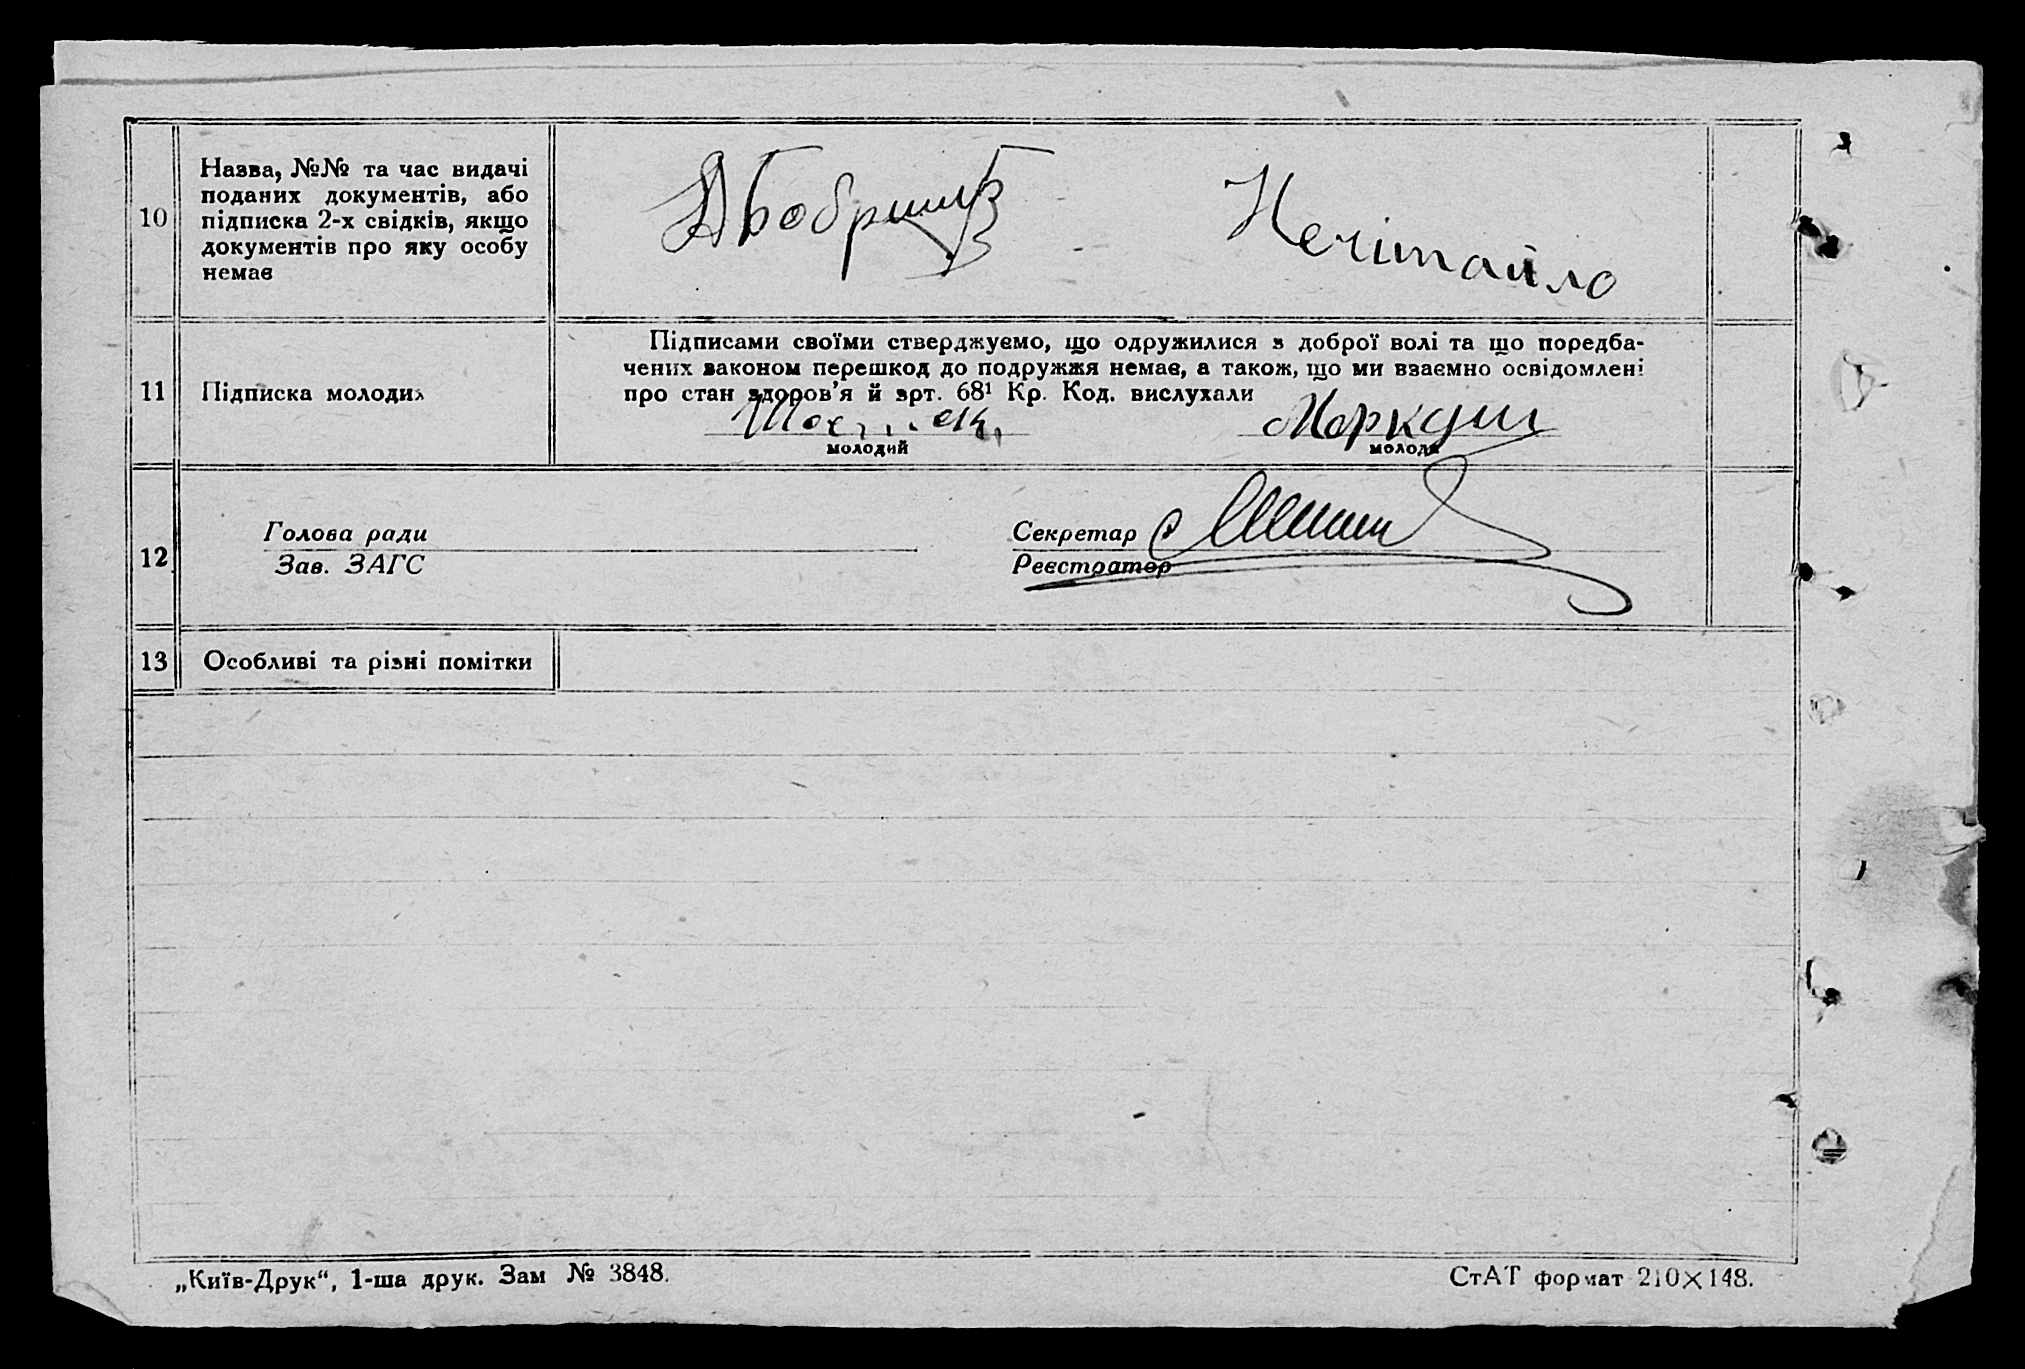 10
Назва, №№ та час видачі
поданих документів, або
підписка 2-х свідків, якщо
документів про яку особу
немає
Нечітайло
11
Підписка молодих
Підписами своїми стверджуємо, що одружилися з доброї волі та що поредба-
чених законом перешкод до подружжя немає, а також, що ми взаємно освідомлені
про стан здоров'я й арт. 68¹ Кр. Код. вислухали
молодий
молода
12
Голова ради
Зав. ЗАГС
Секретар
Реєстратор
13
Особливі та різні помітки
„Київ-Друк“, 1-ша друк. Зам № 3848.
СтАТ формат 210×148.